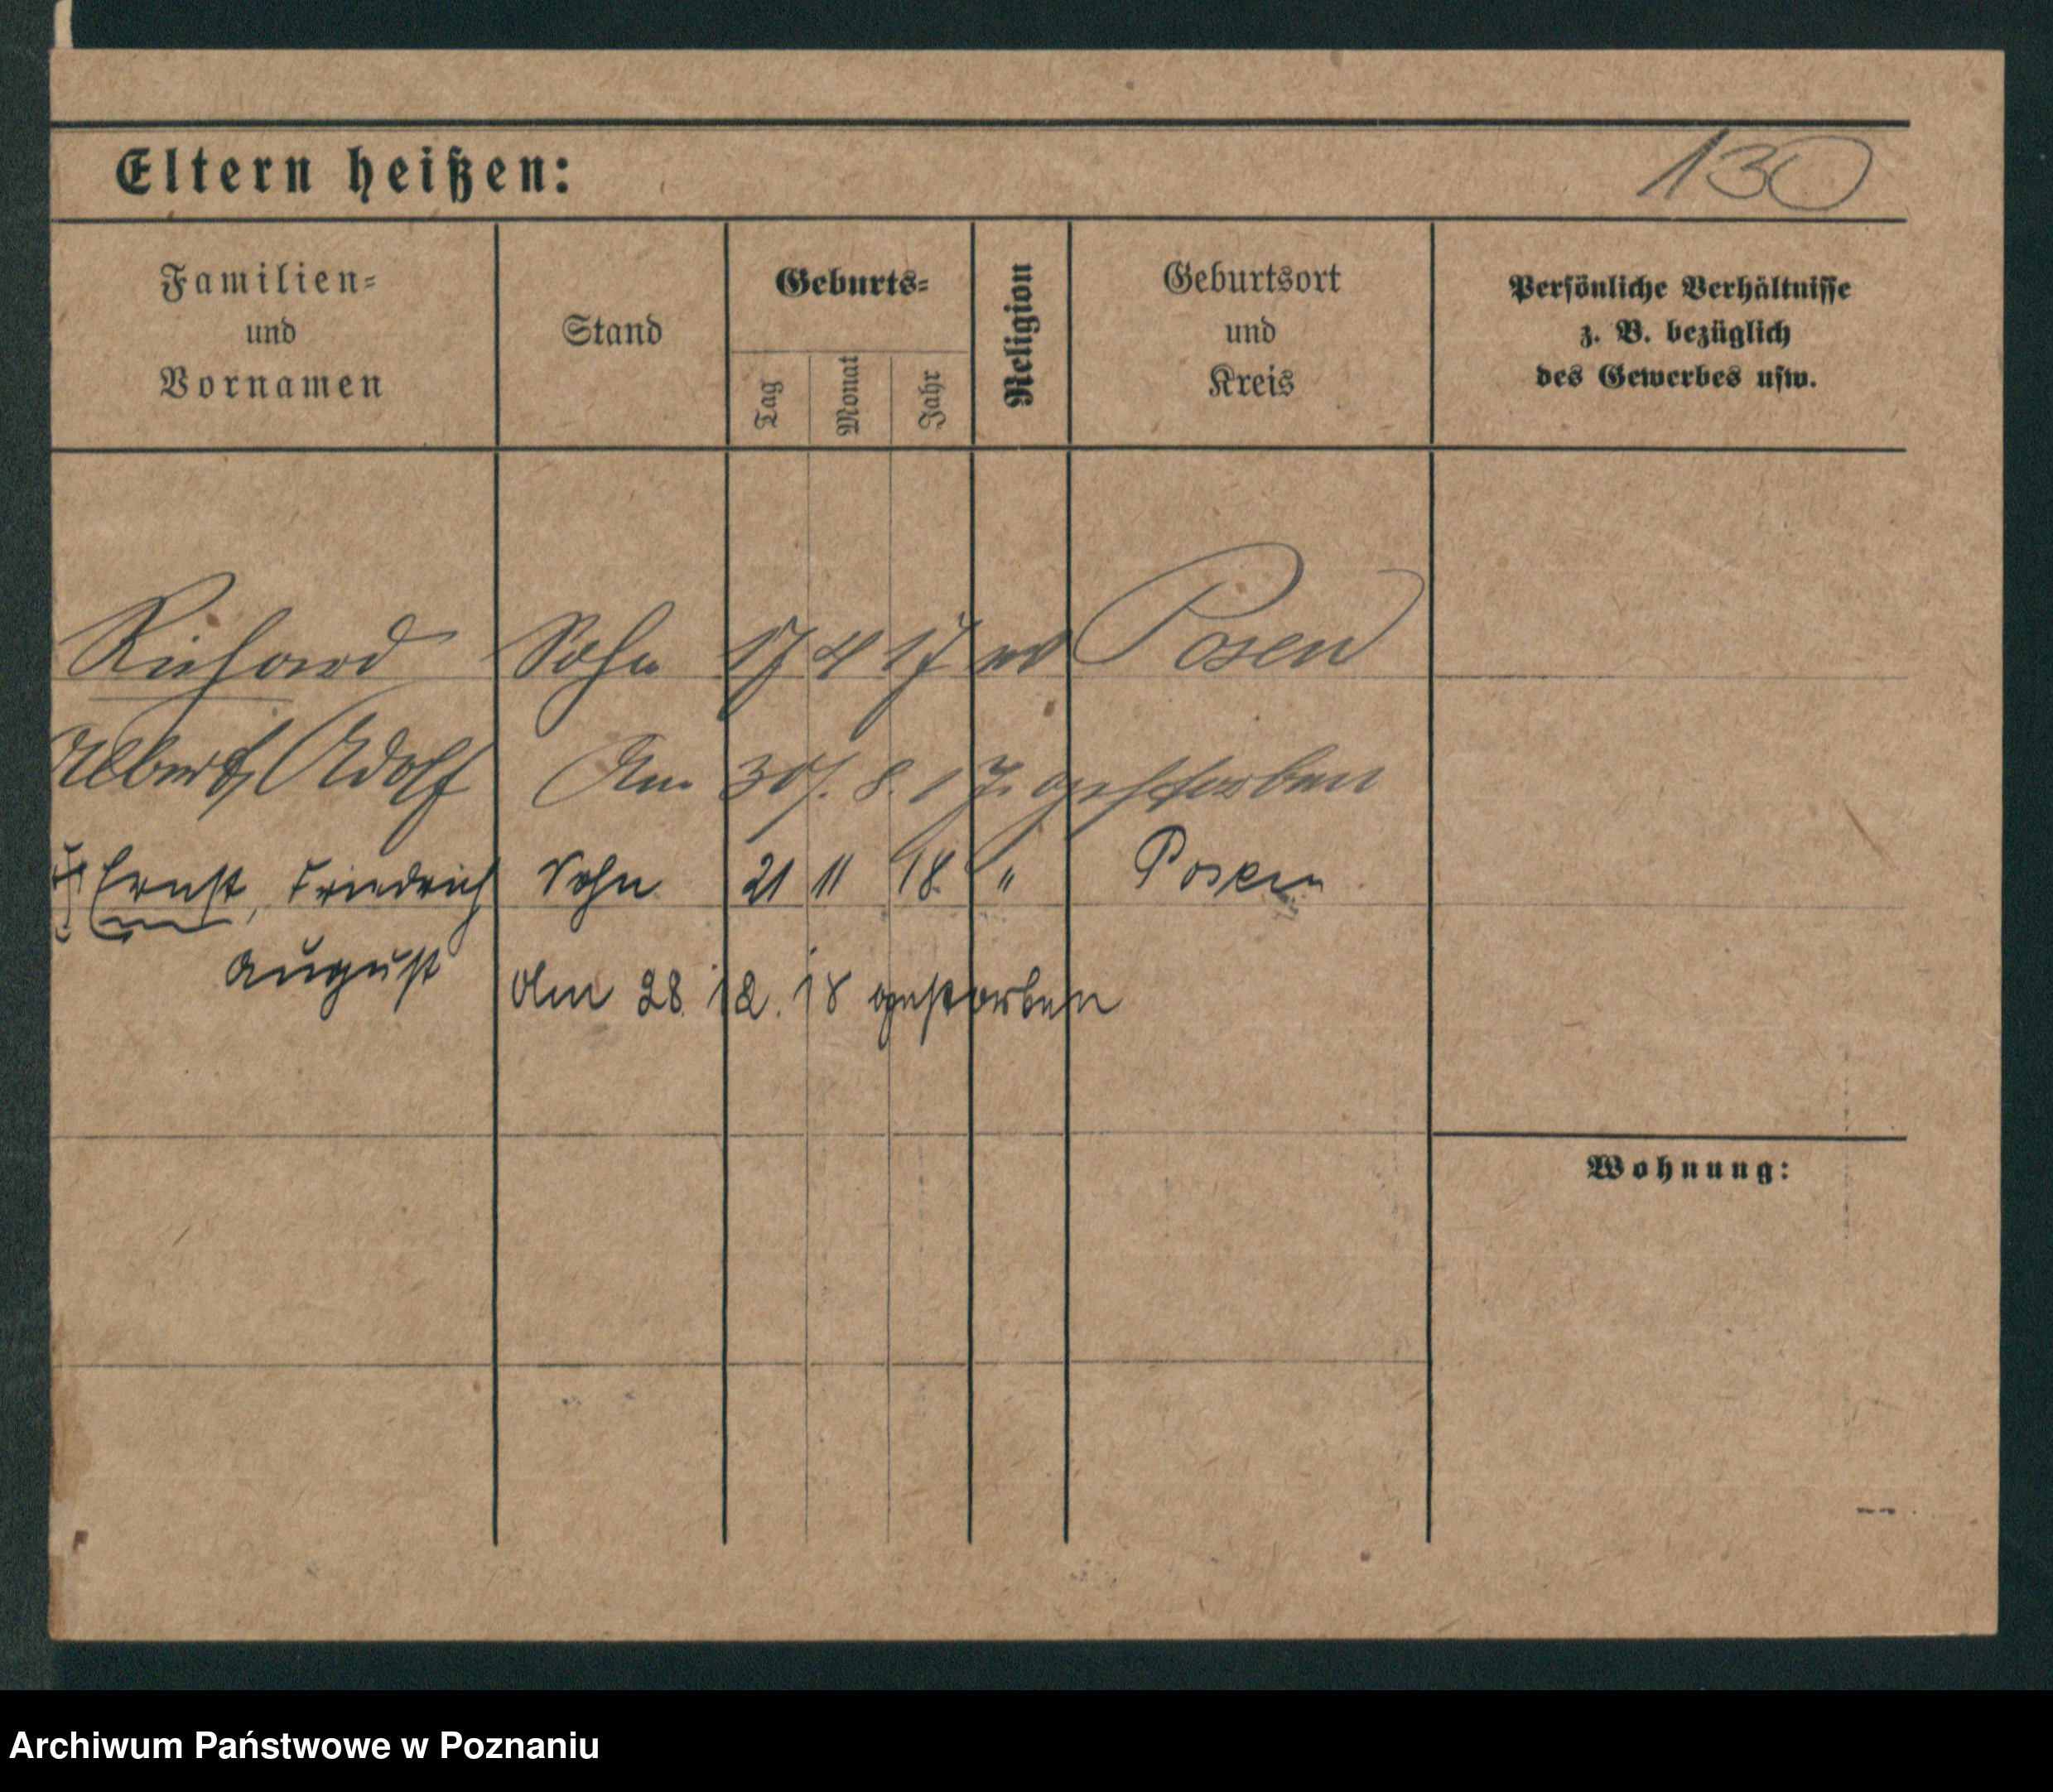 Eltern heißen:
130
Familien-
und
Vornamen
Stand
Geburts-
Tag
Monat
Jahr
Religion
Geburtsort
und
Kreis
Persönliche Verhältnisse
z. B. bezüglich
des Gewerbes usw.
Richard Sohn 17 4 17 ev Posen
Albert, Adolf Am 30/. 8. 17. gestorben
Ernst, Friedrich Sohn 21 11 18. " Posen
August
Am 28. 12. 18 gestorben
Wohnung:
Archiwum Państwowe w Poznaniu